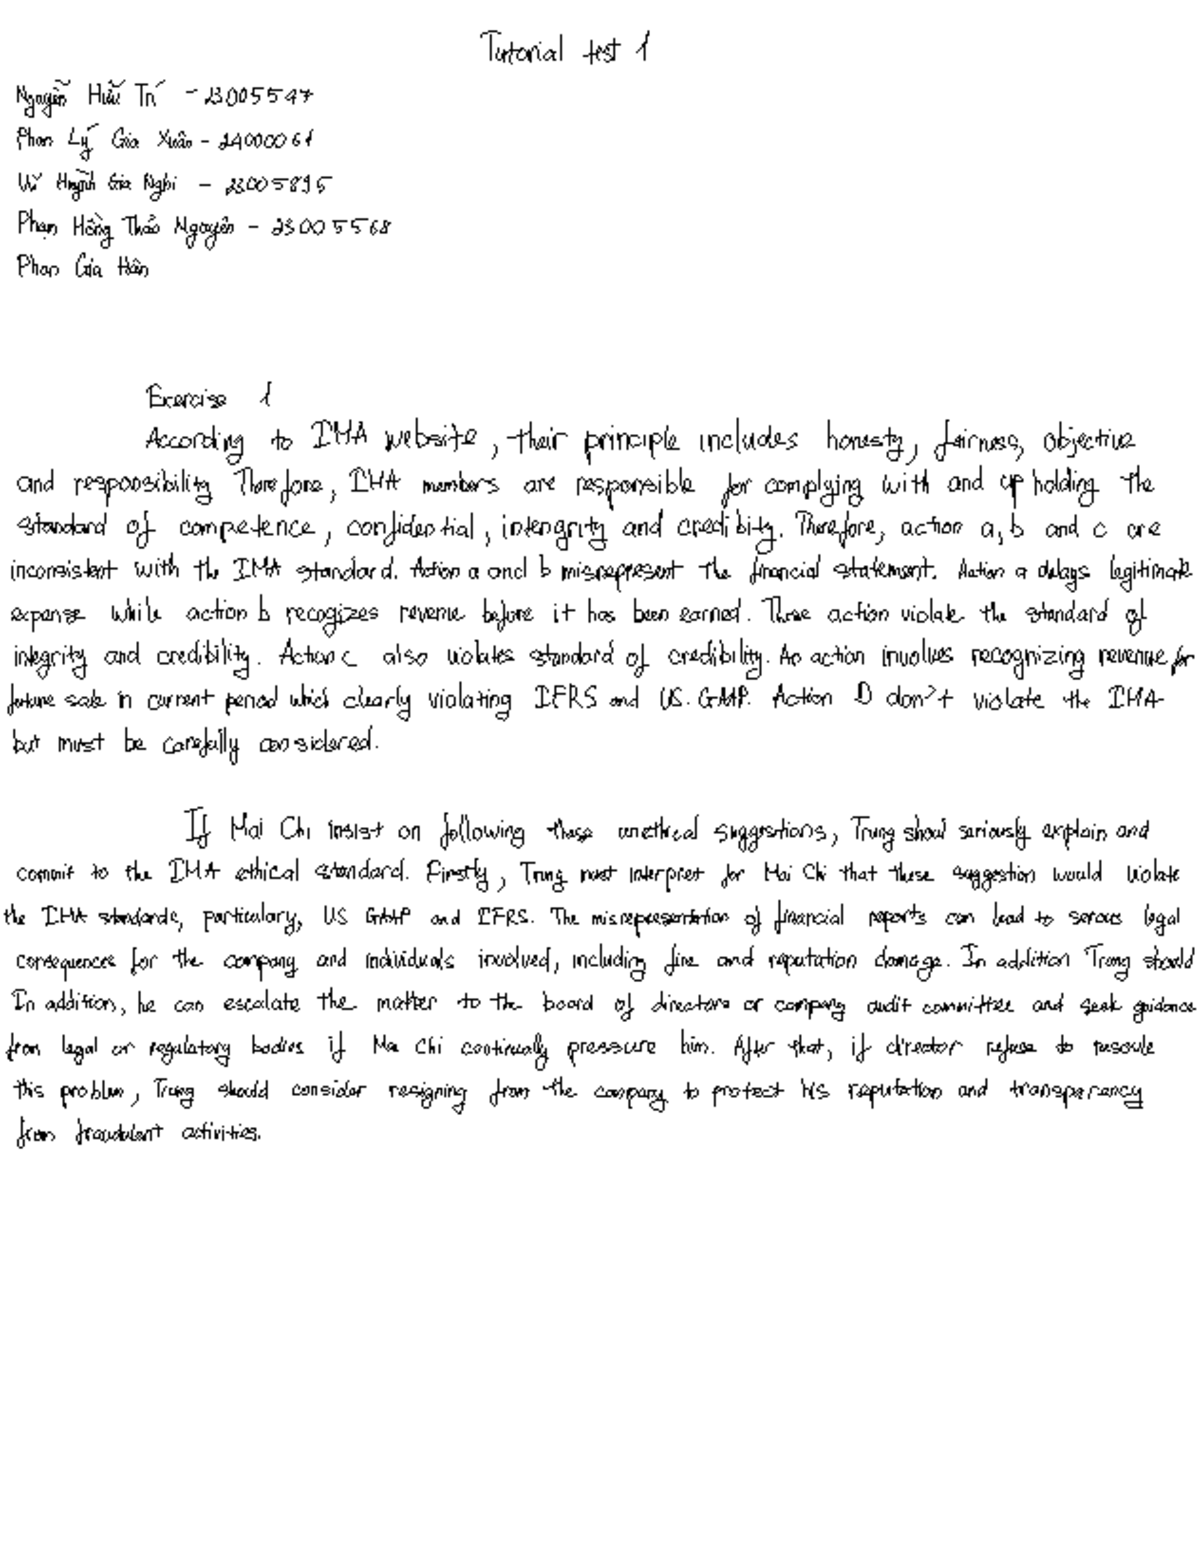 Tutorial test 1
Nguyễn Hữu Trí - 23005547
Phan Lý Gia Xuân - 24000061
Vũ Huỳnh Gia Nghi - 23005895
Phạm Hồng Thảo Nguyên - 23005568
Phan Gia Hân
Exercise 1
According to IMA website, their principle includes honesty, fairness, objective
and responsibility Therefore, IMA members are responsible for complying with and upholding the
standard of competence, confidential, intengrity and credibity. Therefore, action a, b and c are
inconsistent with the IMA standard. Action a and b misrepresent the financial statement. Action a delays legitimate
expense while action b recogizes revenue before it has been earned. These action violate the standard of
integrity and credibility. Action c also violates standard of credibility. An action involves recognizing revenue for
future sale in current period which clearly violating IFRS and US. GAAP. Action D don't violate the IMA
but must be carefully considered.
If Mai Chi insist on following these unethical suggestions, Trung shoul seriously explain and
commit to the IMA ethical standard. Firstly, Trung must interpret for Mai Chi that these suggestion would violate
the IMA standards, particulary, US GAAP and IFRS. The misrepresentation of financial reports can lead to serous legal
consequences for the company and individuals involved, including fine and reputation damage. In addition Trung should
In addition, he can escalate the matter to the board of directors or company audit committee and seek guidance
from legal or regulatory bodies if Mai Chi continually pressure him. After that, if director refuse to resovle
this problem, Trung should consider resigning from the company to protect his reputation and transparency
from fraudulent activities.